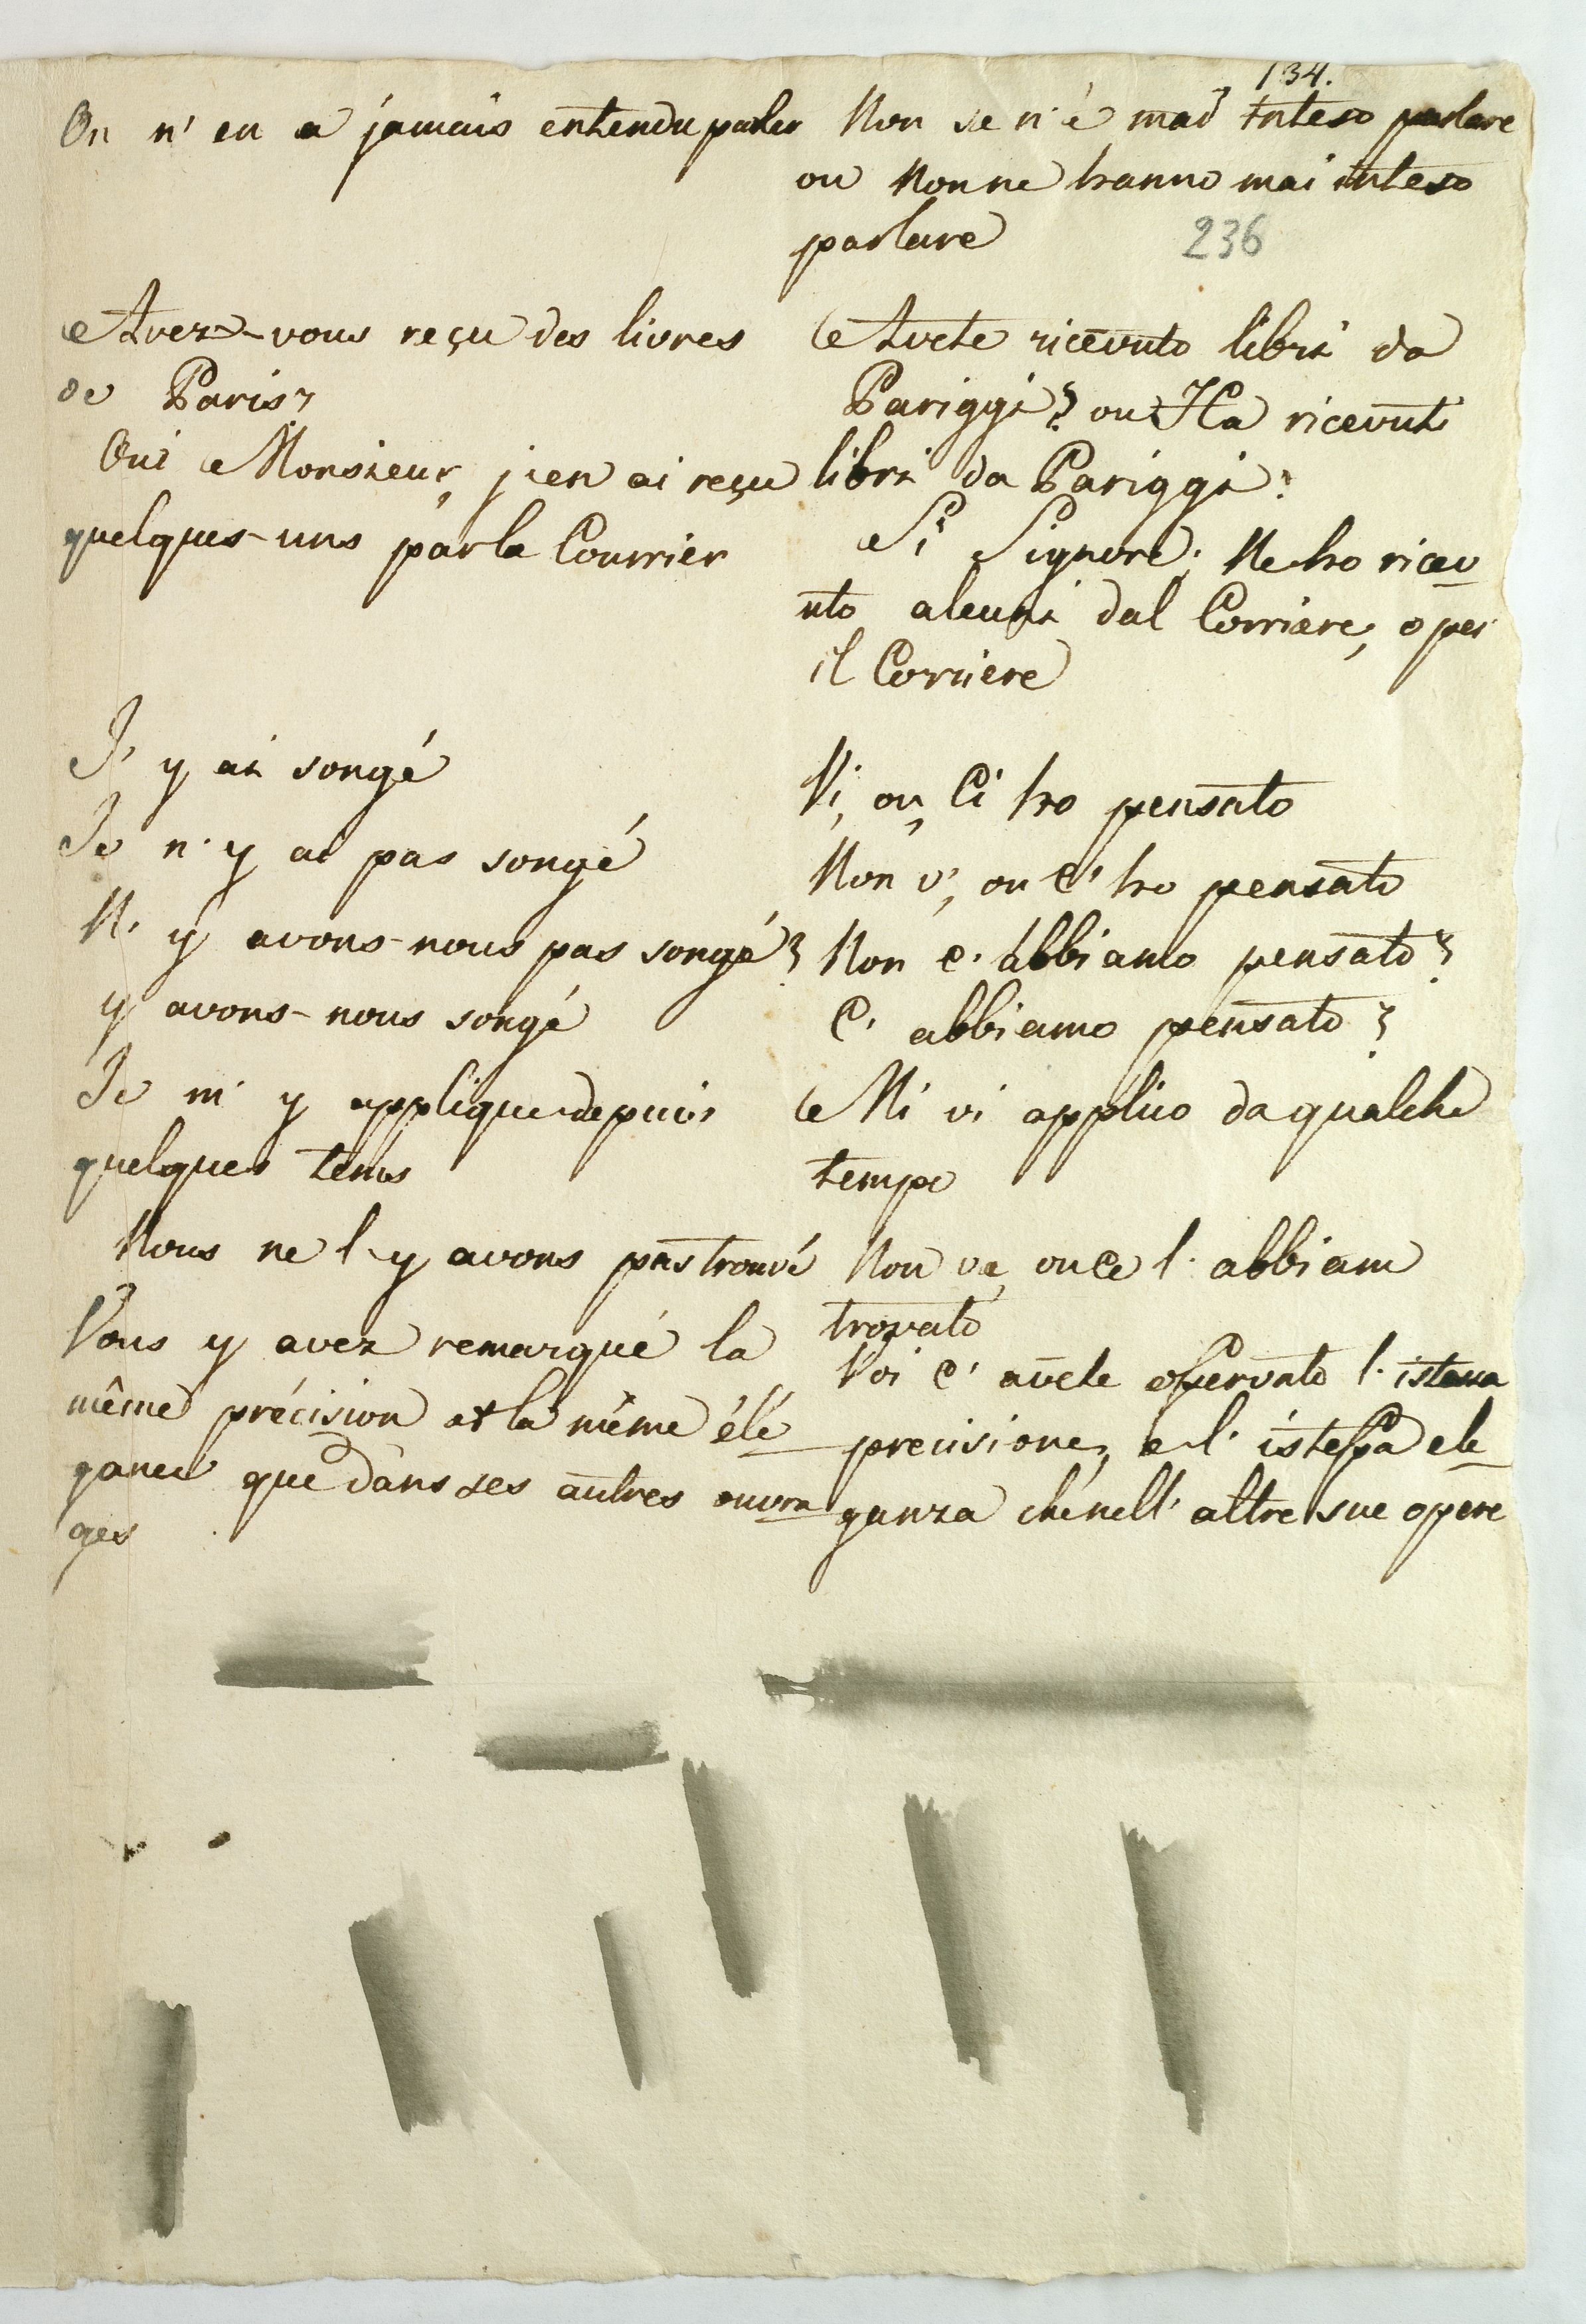 134.
On n' en a jamais entendu parler
Non se n' è mai inteso parlare
ou Non ne hanno mai inteso
parlare
236
Avez-vous reçu des livres
de Paris?
Oui Monsieur, j'en ai reçu
quelques-uns par le Courrier
Avete ricevuto libri da
Pariggi? ou Ha ricevuti
libri da Pariggi?
Si Signore; Ne ho ricev
uto alcuni dal Corriere, o per
il Corriere
J' y ai songé
Je n' y ai pas songé
N' y avons-nous pas songé?
y avons-nous songé
Je m' y applique depuis
quelques tems
Nous ne l' y avons pas trouvé
Vous y avez remarqué la
même précision et la même élé
gance que dans ses autres ouvra
ges
Vi, ou, Ci ho pensato
Non v', ou c' ho pensato
Non c' abbiamo pensato?
C' abbiamo pensato?
Mi vi applico da qualche
tempo
Non ve, ou ce l' abbiam
trovato
Voi c' avete osservato l' istessa
precisione, e l' istessa ele
ganza che nell' altre sue opere